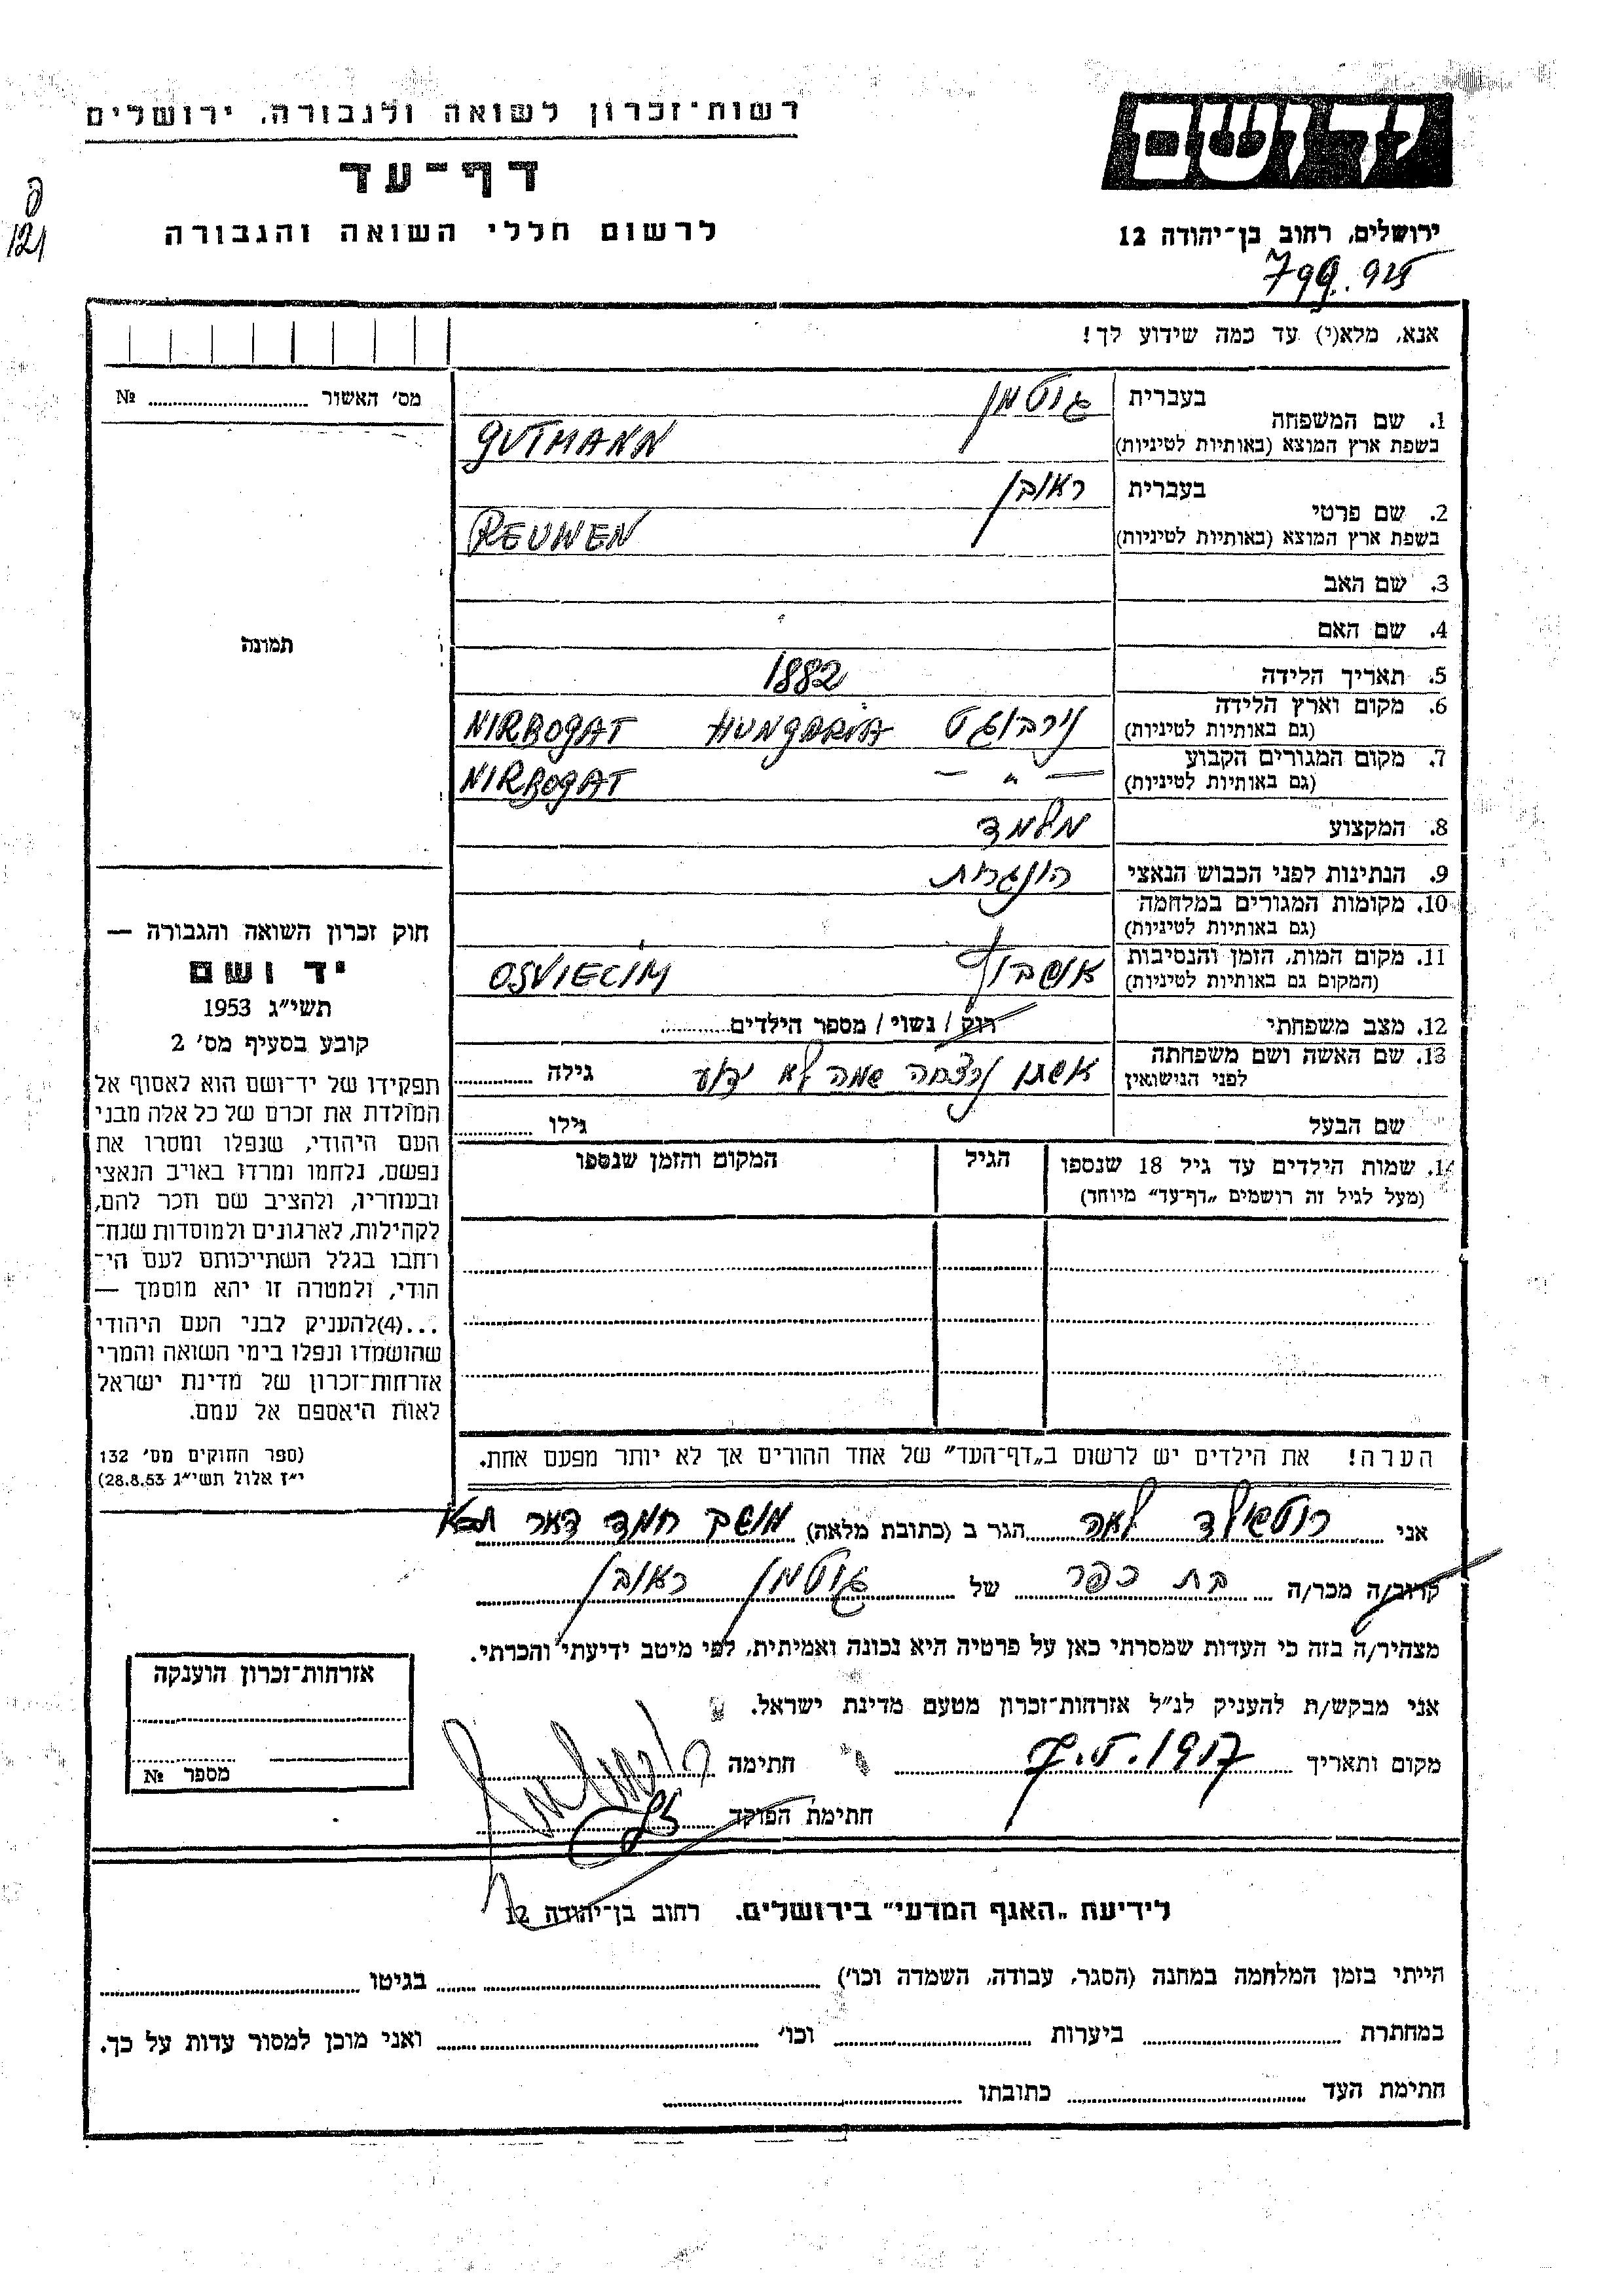 רשות־זכרון לשואה ולגבורה, ירושלים
דף־עד
לרשום חללי השואה והגבורה
יד ושם
ירושלים, רחוב בן־יהודה 12
121
אנא, מלא(י) עד כמה שידוע לך!
מס׳ האשור № ........
1. שם המשפחה
בעברית גוטמן
בשפת ארץ המוצא (באותיות לטיניות) GUTMANN
2. שם פרטי
בעברית ראובן
בשפת ארץ המוצא (באותיות לטיניות) REUWEN
3. שם האב
4. שם האם
תמונה
5. תאריך הלידה 1882
6. מקום וארץ הלידה (גם באותיות לטיניות) נירבוגט HUNGARIA NIRBOGAT
7. מקום המגורים הקבוע (גם באותיות לטיניות) — " — NIRBOGAT
8. המקצוע מלמד
9. הנתינות לפני הכבוש הנאצי הונגרית
10. מקומות המגורים במלחמה (גם באותיות לטיניות)
11. מקום המות, הזמן והנסיבות (המקום גם באותיות לטיניות) אושביץ OSVIECIM
12. מצב משפחתי רוק / נשוי / מספר הילדים........
13. שם האשה ושם משפחתה לפני הנישואין אשתו נרצחה שמה לא ידוע גילה ........
שם הבעל גילו ........
14. שמות הילדים עד גיל 18 שנספו
(מעל לגיל זה רושמים „דף־עד" מיוחד)
הגיל
המקום והזמן שנספו
חוק זכרון השואה והגבורה —
יד ושם
תשי״ג 1953
קובע בסעיף מס׳ 2
תפקידו של יד־ושם הוא לאסוף אל
המולדת את זכרם של כל אלה מבני
העם היהודי, שנפלו ומסרו את
נפשם, נלחמו ומרדו באויב הנאצי
ובעוזריו, ולהציב שם וזכר להם,
לקהילות, לארגונים ולמוסדות שנח־
רחבו בגלל השתייכותם לעם הי־
הודי, ולמטרה זו יהא מוסמך —
...(4)להעניק לבני העם היהודי
שהושמדו ונפלו בימי השואה והמרי
אזרחות־זכרון של מדינת ישראל
לאות היאספם אל עמם.
(ספר החוקים מס׳ 132
י״ז אלול תשי״ג 28.8.53)
הערה! את הילדים יש לרשום ב„דף־העד" של אחד ההורים אך לא יותר מפעם אחת.
אני רוטשילד לאה הגר ב (כתובת מלאה) מושב חמד דאר
קרוב/ה מכר/ה בת כפר של גוטמן ראובן
מצהיר/ה בזה כי העדות שמסרתי כאן על פרטיה היא נכונה ואמיתית, לפי מיטב ידיעתי והכרתי.
אני מבקש/ת להעניק לנ״ל אזרחות־זכרון מטעם מדינת ישראל.
מקום ותאריך חתימה
חתימת הפוקד
אזרחות־זכרון הוענקה
מספר №
לידיעת „האגף המדעי" בירושלים, רחוב בן־יהודה 12
הייתי בזמן המלחמה במחנה (הסגר, עבודה, השמדה וכו׳) ........ בגיטו ........
במחתרת ........ ביערות ........ וכו׳ ........ ואני מוכן למסור עדות על כך.
חתימת העד ........ כתובתו ........